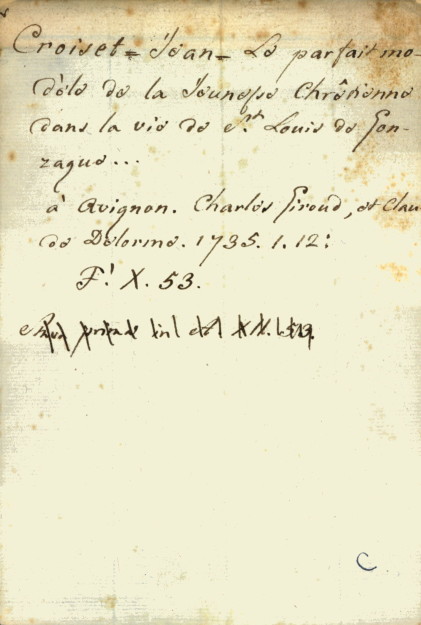 Croiset = Jean = Le parfait mo-
dèle de la Jeunesse Chrêtienne
dans la vie de St. Louis de Gon-
zague...
à Avignon. Charles Giroud, et Clau-
de Delorme. 1735. 1. 12:
F.! X. 53.
C